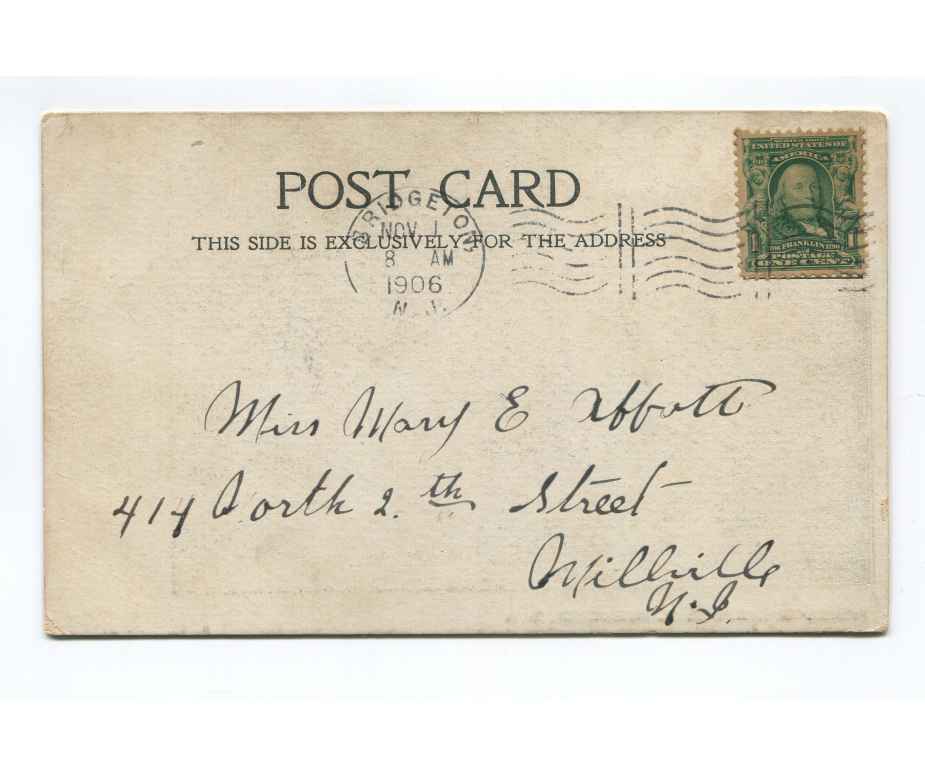 POST CARD
THIS SIDE IS EXCLUSIVELY FOR THE ADDRESS
BRIDGETON,
NOV 1
8 AM
1906
N.J.
UNITED STATES OF
AMERICA
1 FRANKLIN 1790 1
POSTAGE
ONE CENT
Miss Mary E Abbott
414 North 2.th Street
Millville
N.J.